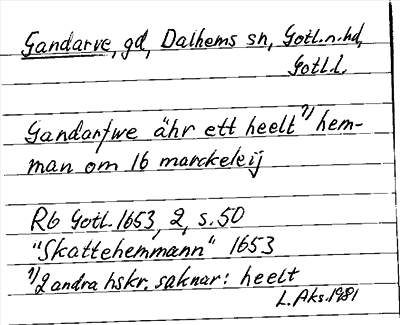 Gandarve, gd, Dalhems sn, Gotl.n.hd,
Gotl.l.
Gandarfwe ähr ett heelt 1) hem-
man om 16 marckeleij
Rb Gotl. 1653, 2, s.50
"Skattehemmann" 1653
1) 2 andra hskr. saknar: heelt
L.Aks.1981